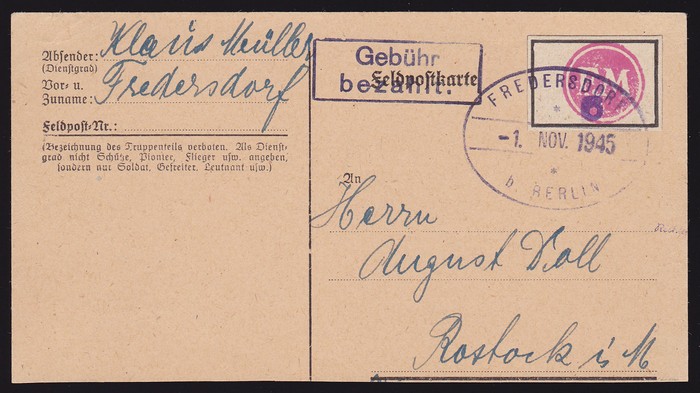 Absender: Klaus Müller
(Dienstgrad)
Vor= u.
Zuname: Fredersdorf
Feldpost=Nr.:
(Bezeichnung des Truppenteils verboten. Als Dienst=
grad nicht Schütze, Pionier, Flieger usw. angeben,
sondern nur Soldat, Gefreiter, Leutnant usw.)
Gebühr
bezahlt.
Feldpostkarte
FREDERSDORF
6
-1. NOV. 1945
b. BERLIN
An
Herrn
August Doll
Rostock i M